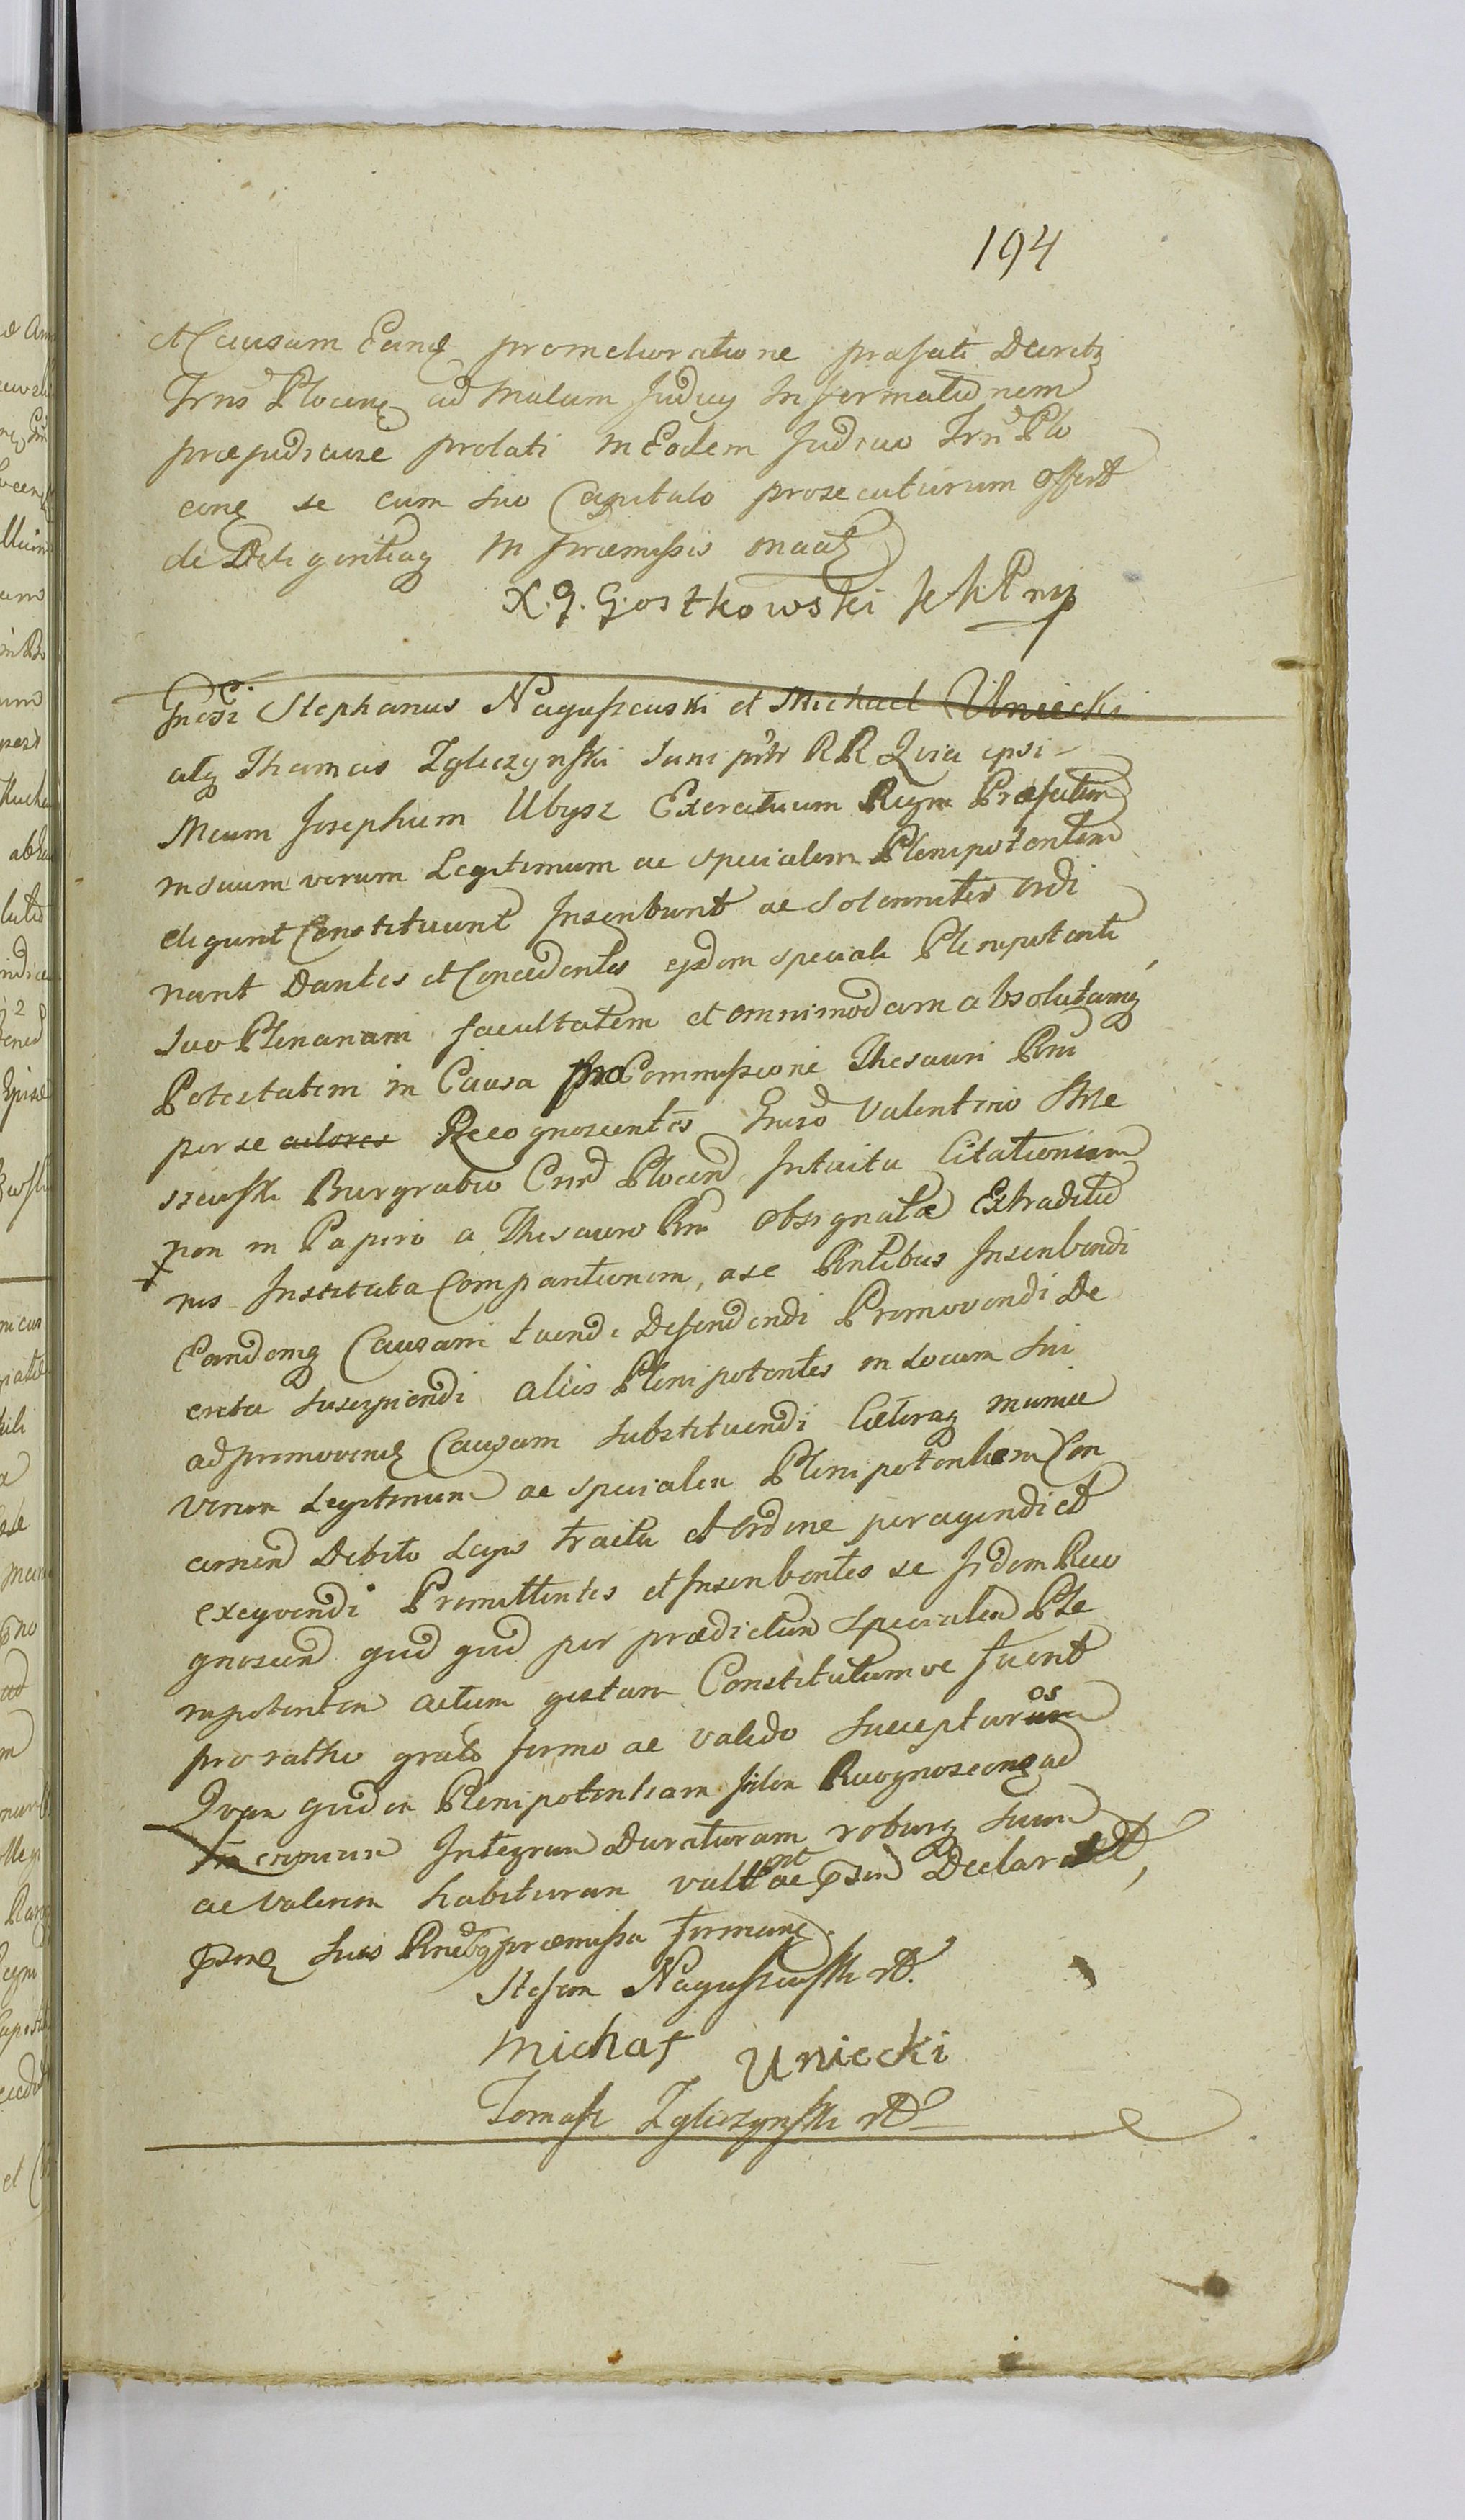 194
et Causam Eandq promelioratione præfati Decretj
Trns Plocenq ad Malam Judicy Informationem
præjudiciose prolati in Eodem Judicio Trn Plo
cenq se cum suo Capitulo prosecuturum offert
de Diligentiaq in præmissis
X. J. Gostkowski
Gnosi Stephanus Naguszewski et Michael Uniecki
atq Thomas Zgliczynski Sani RR Quia ipsi
Meum Josephum Ubysz Exercituum Regni Præfatum
in suum verum Legitimum ac specialem Plenipotentem
eligunt Constituunt Inscribunt ac Solenniter ordi
nant Dantes et Concedentes ejdem speciali Plenipotenti
suo Plenariam facultatem et omnimodam absolutamq
Potestatem in Causa pro Commissione Thesauri Rni
per se actores Recognoscentes Gnoso Valentino
szewski Burgrabio Plocen Intuitu Citationum
non in Papiro a Thesauro Rni Obsignata Extradito
rus Instituta Compantionem, a se Rntibus Inscribendi
Eandemq Causam tuendi Defendendi Promovendi De
creta suscipiendi alios Plenipotentes in Locum sui
ad promovend Causam substituendi Cæteraq munia
verum Legitimum ac specialem Plenipotentem Con
cernen Debito Legis tractu et ordine peragendi et
exeqvendi Promittentes et Inscribentes se Iidem Reco
gnoscen quid quid per prædictum specialem Ple
nipotentem actum gestum Constitutumve fuerit
pro ratho grato firmo ac valido suscepturos
Qvam quidem Plenipotentiam Recognoscend ad
Integrum Duraturam roburq suum
ac Valorem habituram vult ac Declarat,
suis præmissa firmand
Stefan Naguszewski
Michał Uniecki
Tomasz Zgliczynski